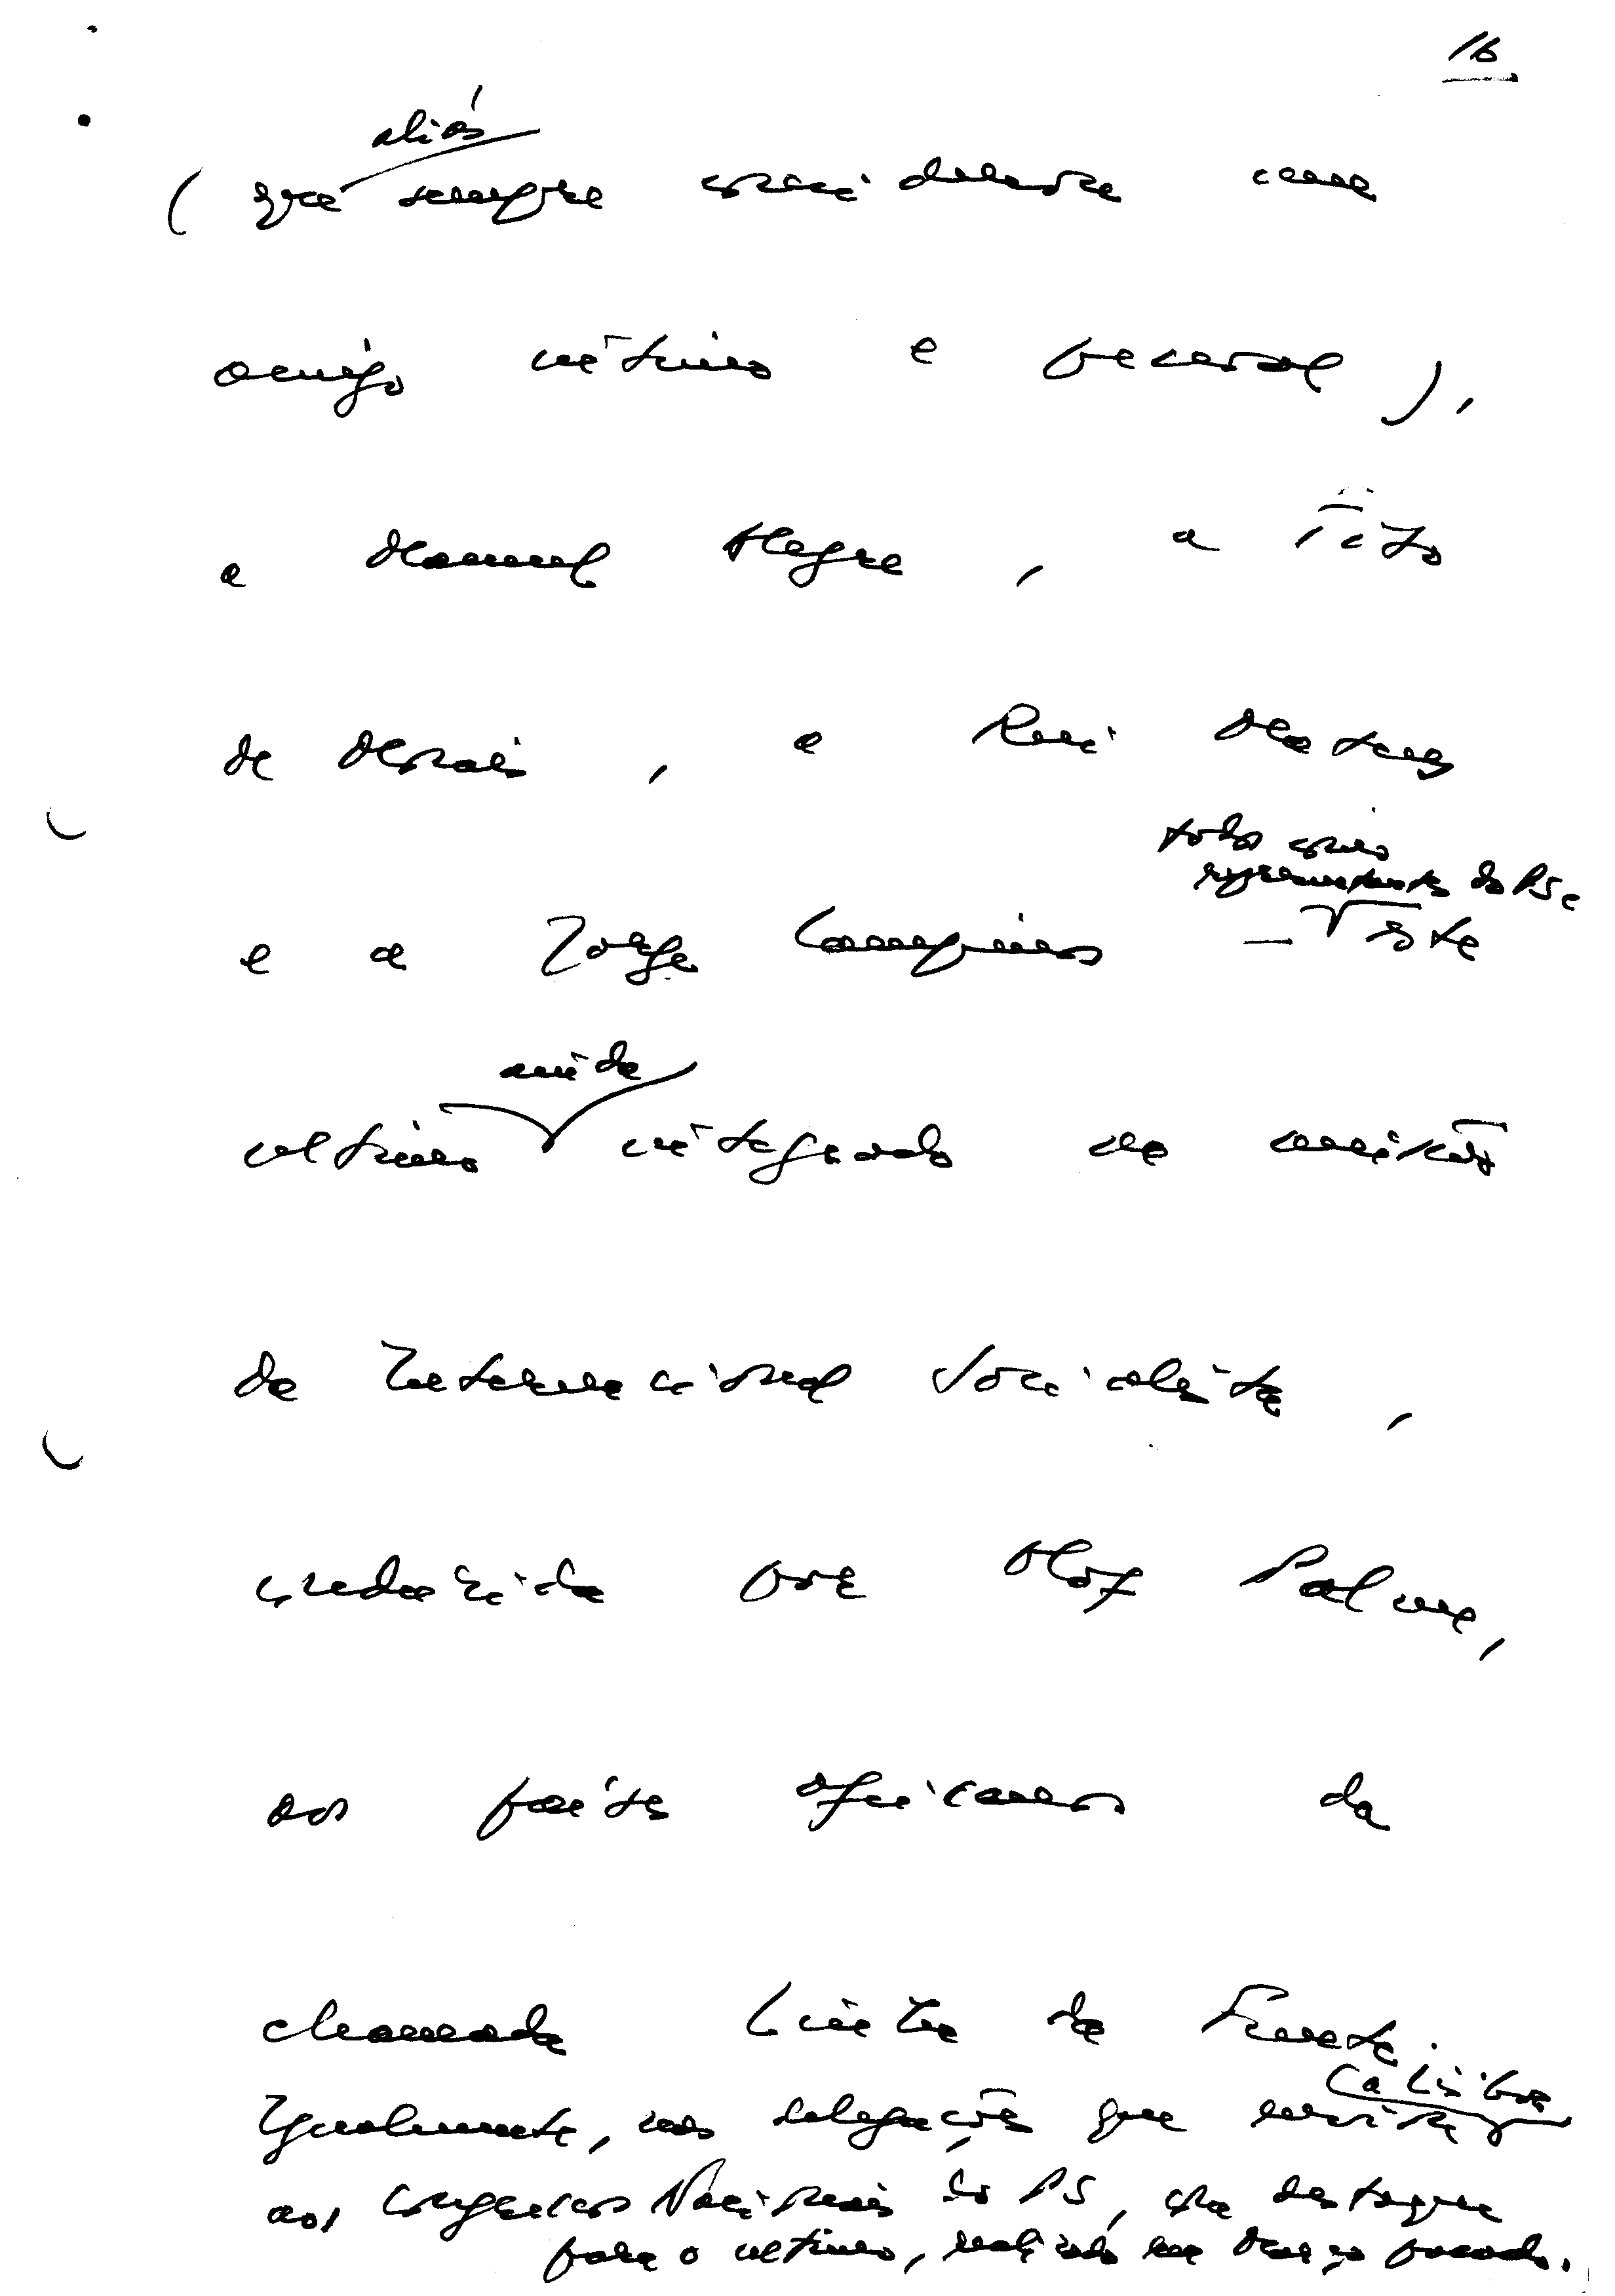 16
aliás
( que sempre considerei como
amigo íntimo e pessoal ),
a Manuel Alegre, a Tito
de Morais, a Rui Mateus
todos como
representantes do PS e
e a Jorge Campinos — este
ainda
último integrado na missão
da Internacional Socialista,
conduzida por Olof Palme,
aos países africanos da
chamada Linha da Frente.
(a Lisboa)
Igualmente, nas delegações que enviou
aos Congressos Nacionais do PS, com destaque
para o último, realizado em Março passado.